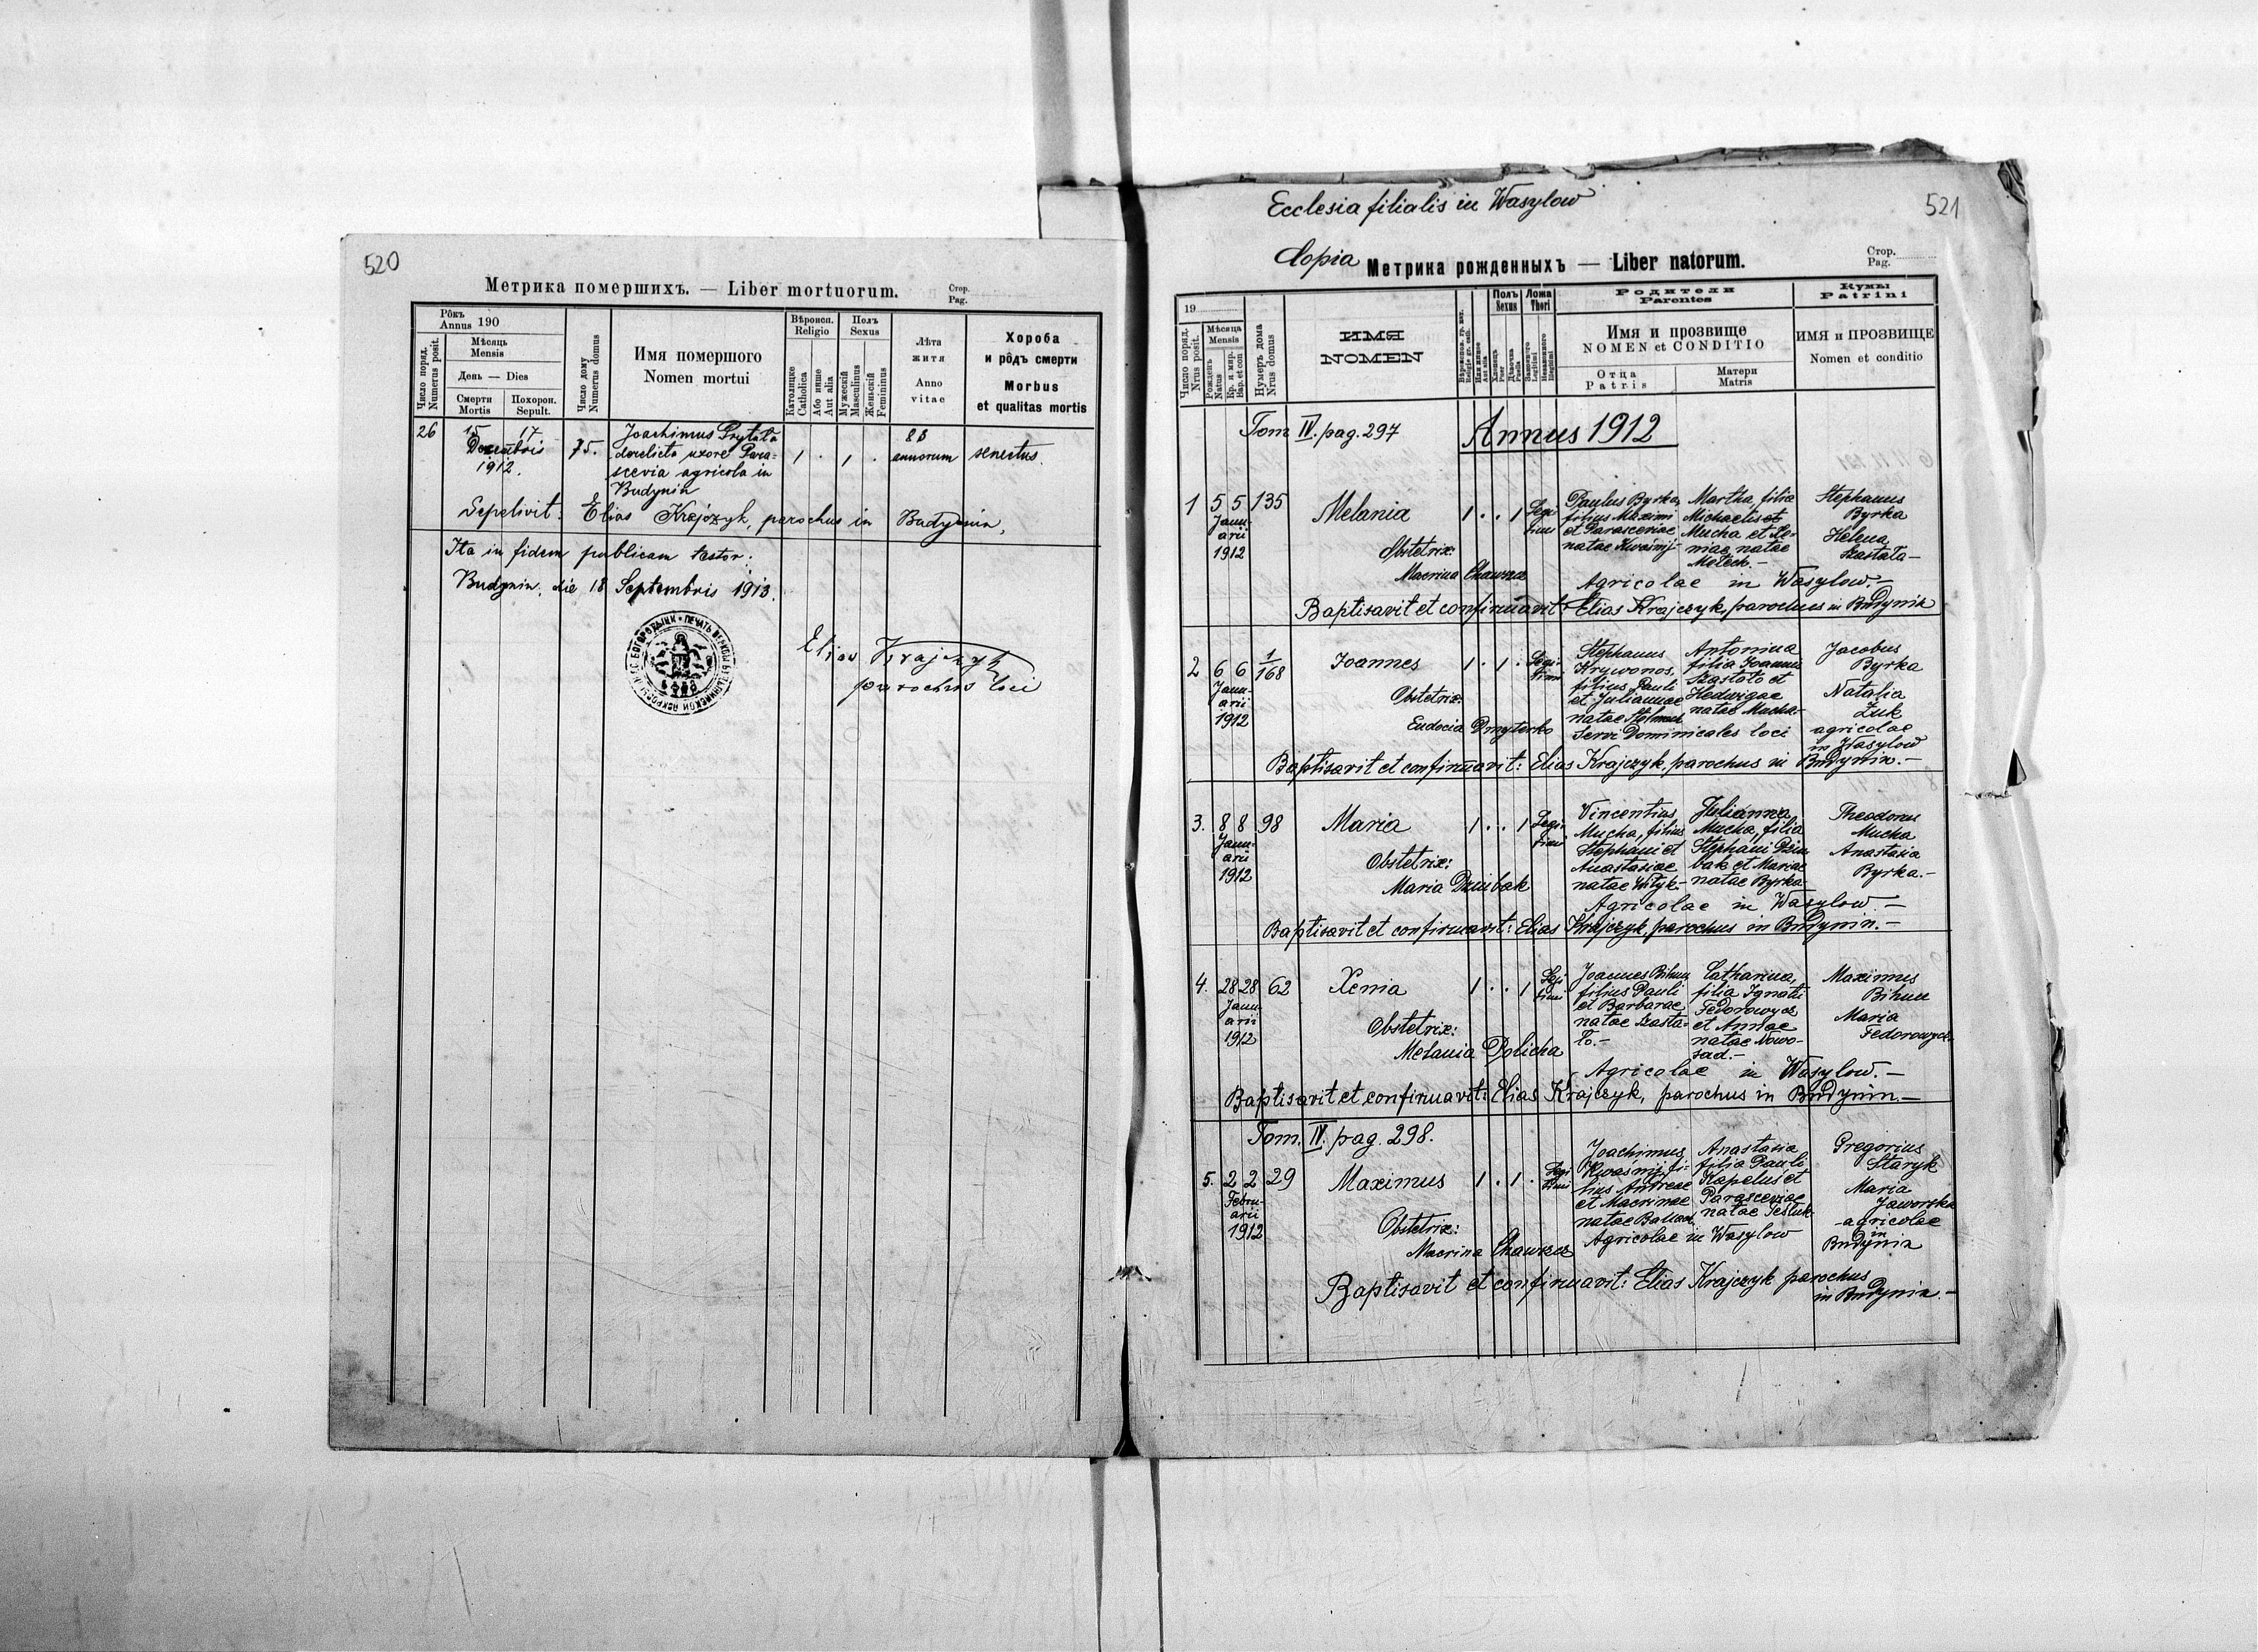 520
Метрика помершихъ. — Liber mortuorum.
Стор.
Pag.
Рôкъ
Annus 190
Число поряд.
Numerus posit.
Мѣсяць
Mensis
День — Dies
Смерти
Mortis
Похорон.
Sepult.
Число дому
Numerus domus
Имя помершого
Nomen mortui
Вѣроисп.
Religio
Католицке
Catholica
Або инше
Aut alia
Полъ
Sexus
Мужескій
Masculinus
Женьскій
Femininus
Лѣта
житя
Anno
vitae
Хороба
и рôдъ смерти
Morbus
et qualitas mortis
26
15 17
Decembris
1912.
75.
Joachimus Prytuła
derelicta uxore Para-
scevia agricola in
Budynin
1 . 1 .
83
annorum
senectus.
Sepelivit: Elias Krajczyk, parochus in Budynin,
Ita in fidem publicam testor:
Budynin, die 18 Septembris 1913.
Elias Krajczyk
parochus loci
Ecclesia filialis in Wasylow
521
Copia Метрика рожденныхъ — Liber natorum.
Стор.
Pag.
19
Число поряд.
Nrus posit.
Мѣсяца
Mensis
Рожденъ
Natus
Кр. и мир.
Bap. et con
Нумеръ дома
Nrus domus
ИМЯ
NOMEN
Религiо gr. cath.
Или инное
Aut alia
Полъ
Sexus
Хлопець
Puer
Дѣвочка
Puella
Ложа
Thori
Законного
Legitimi
Незаконного
Illegitimi
Родители
Parentes
Имя и прозвище
NOMEN et CONDITIO
Отца
Patris
Матери
Matris
Кумы
Patrini
ИМЯ и ПРОЗВИЩЕ
Nomen et conditio
Tom IV. pag. 297
Annus 1912
1 5 5 135
Janu-
arii
1912
Melania
1 . . 1
Legi
timi
Paulus Byrka,
filius Maximi
et Parasceviae
natae Kwaśnij-
Martha, filia
Michaelis et
Mucha et Xe-
niae natae
Stephanus
Byrka
Helena
Szastała-
Obstetrix:
Macrina Chawrze
Agricolae in Wasylow.-
Baptisavit et confirmavit: Elias Krajczyk, parochus in Budynin
2 6 6 1/168
Janu-
arii
1912
Joannes
1 . 1 .
Legi-
timi
Stephanus
Krywonos,
filius Pauli
et Juliannae
natae
Antonina
filia Joannis
Szastało et
Hedwigae
natae Mucha-
Jacobus
Byrka
Natalia
Żuk
agricolae
in Wasylow
Obstetrix:
Eudocia Dmyterko
Servi Dominicales loci
Baptisavit et confirmavit: Elias Krajczyk, parochus in Budynin.-
3. 8 8 98
Janu-
arii
1912
Maria
1 . . 1
Legi-
timi
Vincentius
Mucha, filius
Stephani et
Anastasiae
natae
Julianna
Mucha, filia
Stephani Dziu
bak et Mariae
natae Byrka-
Theodorus
Mucha
Anastasia
Byrka.-
Obstetrix:
Maria Dziubak
Agricolae in Wasylow.-
Baptisavit et confirmavit: Elias Krajczyk, parochus in Budynin.-
4. 28 28 62
Janu-
arii
1912
Xenia
1 . . 1
Legi
timi
Joannes Bihun
filius Pauli
et Barbarae
natae Szasta-
ło.-
Catharina,
filia Ignatii
Fedorowycz
et Annae
natae Nowo-
sad.-
Maximus
Bihun
Maria
Fedorowycz-
Obstetrix:
Melania Dolicha
Agricolae in Wasylow.-
Baptisavit et confirmavit: Elias Krajczyk, parochus in Budynin.-
Tom. IV. pag. 298.
5. 2 2 29
Febru-
arii
1912
Maximus
1 . 1 .
Legi
timi
Joachimus
Kwaśnij fi-
lius Andreae
et Macrinae
natae
Anastasia
filia Pauli
Kapeluś et
Parasceviae
natae
Gregorius
Staryk
Maria
Jaworska
-agricolae
in
Budynin
Obstetrix:
Macrina
Agricolae in Wasylow
Baptisavit et confirmavit: Elias Krajczyk parochus
in Budynin.-